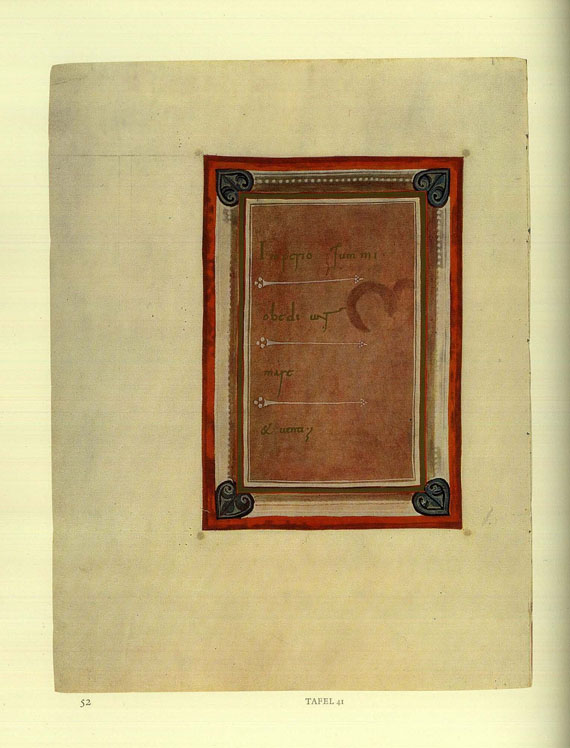 Imperio summi
obediunt
mare
& uenti
52
TAFEL 41